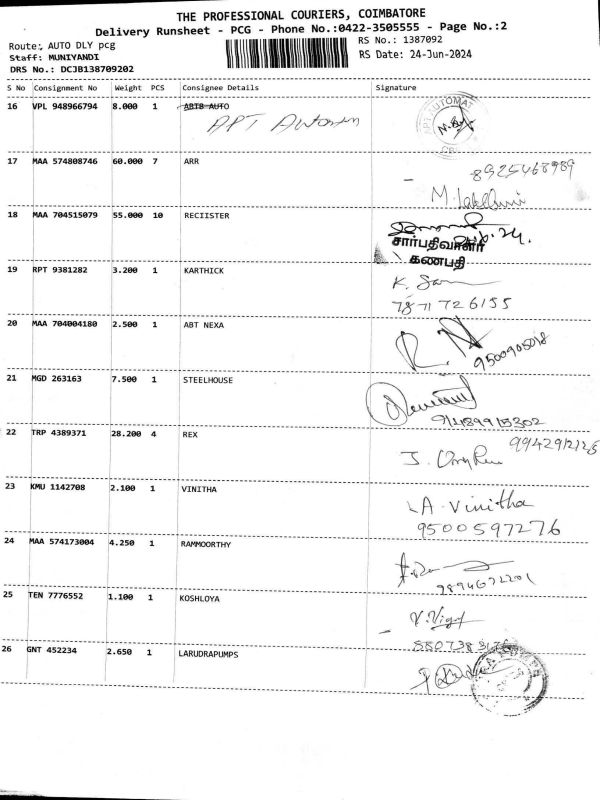 THE PROFESSIONAL COURIERS, COIMBATORE
Delivery Runsheet - PCG - Phone No.:0422-3505555 - Page No.:2
Route:, AUTO DLY pcg
RS No.: 1387092
Staff: MUNIYANDI
RS Date: 24-Jun-2024
DRS No.: DCJB138709202
S No Consignment No Weight PCS Consignee Details Signature
16 VPL 948966794 8.000 1 ABT8 AUTO
APT AUTOMAT
17 MAA 574808746 60.000 7 ARR
8925468989
M. Lakshmi
18 MAA 704515079 55.000 10 RECIISTER
சார்பதிவாளர்
கணபதி
19 RPT 9381282 3.200 1 KARTHICK
7871726155
20 MAA 704004180 2.500 1 ABT NEXA
21 MGD 263163 7.500 1 STEELHOUSE
22 TRP 4389371 28.200 4 REX
23 KMU 1142708 2.100 1 VINITHA
A. Vinitha
9500597276
24 MAA 574173004 4.250 1 RAMMOORTHY
9894672201
25 TEN 7776552 1.100 1 KOSHLOYA
26 GNT 452234 2.650 1 LARUDRAPUMPS